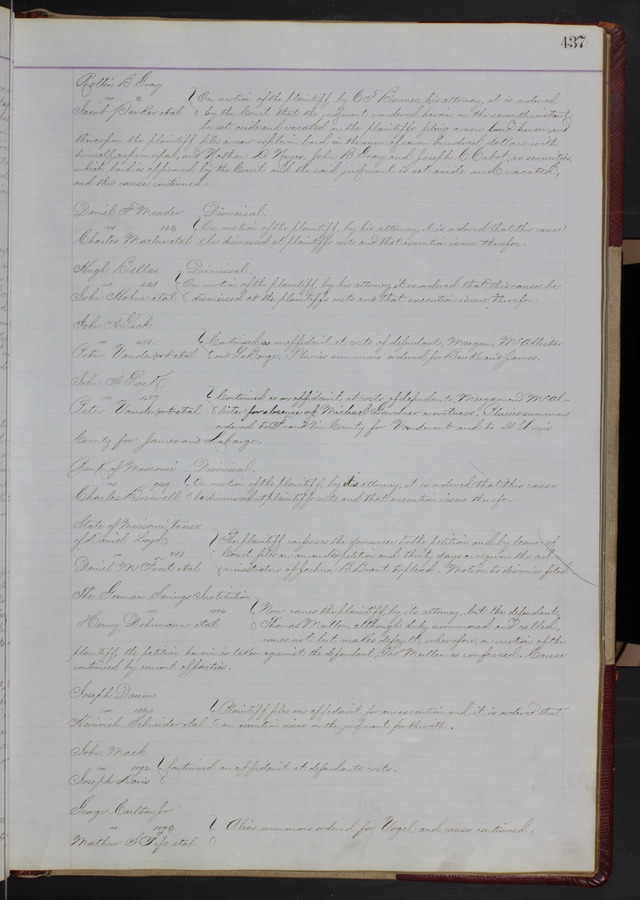 437
Rollin B Gray
vs 8
Jacob Barker etal
On motion of the plaintiff by his attorney, it is ordered
by the Court that the judgment rendered herein on the seventh instant
be set aside and vacated on the plaintiffs filing a new bond herein and
thereupon the plaintiff files a new replevin bond in the sum of seven hundred dollars with
himself as principal, and Nathan D Noyes, John B Gray and Joseph C Cabot, as securities
which bond is approved by the Court and the said judgment is set aside and vacated,
and this cause continued.
Daniel F Meader Dismissal.
vs 124 On motion of the plaintiff, by his attorney, it is ordered that this cause
Charles Maclov etal be dismissed at plaintiffs costs and that execution issue therefor.
Hugh Bellas Dismissal.
vs On motion of the plaintiff, by his attorney it is ordered that this cause be
John Hohne etal dismissed at the plaintiffs costs and that execution issue therefor.
John A Gack
vs Continued on affidavit at costs of defendants, Morgan, McAllister
Peter Vandervort etal and LaBarge. Pluries summons ordered for Burke and James.
John A Gack
vs 457 Continued on affidavit at costs of defendants, Morgan and McAl-
Peter Vandervort etal lister for absence of Michael Gardner a witness. Pluries summons
ordered to Franklin County for Vandervort and to St Louis
County for James and LaBarge.
Bank of Missouri Dismissal.
vs 949 On motion of the plaintiff by its attorney, it is ordered that this cause
Charles Boswell be dismissed at plaintiffs costs and that execution issue therefor.
State of Missouri to use
of Daniel Lloyd
vs
Daniel M Frost etal
The plaintiff confesses the demurrer to the petition and by leave of
Court, files an amended petition and thirty days are given the ad
ministrator of Joshua B Brant to plead. Motion to dismiss filed
The German Savings Institution
vs 1016
Henry Dohmann etal
Now comes the plaintiff by its attorney, but the defendant,
Thomas Muller, although duly summoned and called,
comes not, but makes default; wherefore, on motion of the
plaintiff, the petition herein is taken against the defendant, Tho Muller as confessed. Cause
continued by consent of parties.
Joseph Daum
vs Plaintiff files an affidavit for an execution and it is ordered that
Heinrich Schneider etal an execution issue on the judgment forthwith.
John Mack
vs 1092 Continued on affidavit at defendants costs.
Joseph Davis
George Carlton Jr
vs 1096 Alias summons ordered for Vogel and cause continued.
Mathew S Fife etal